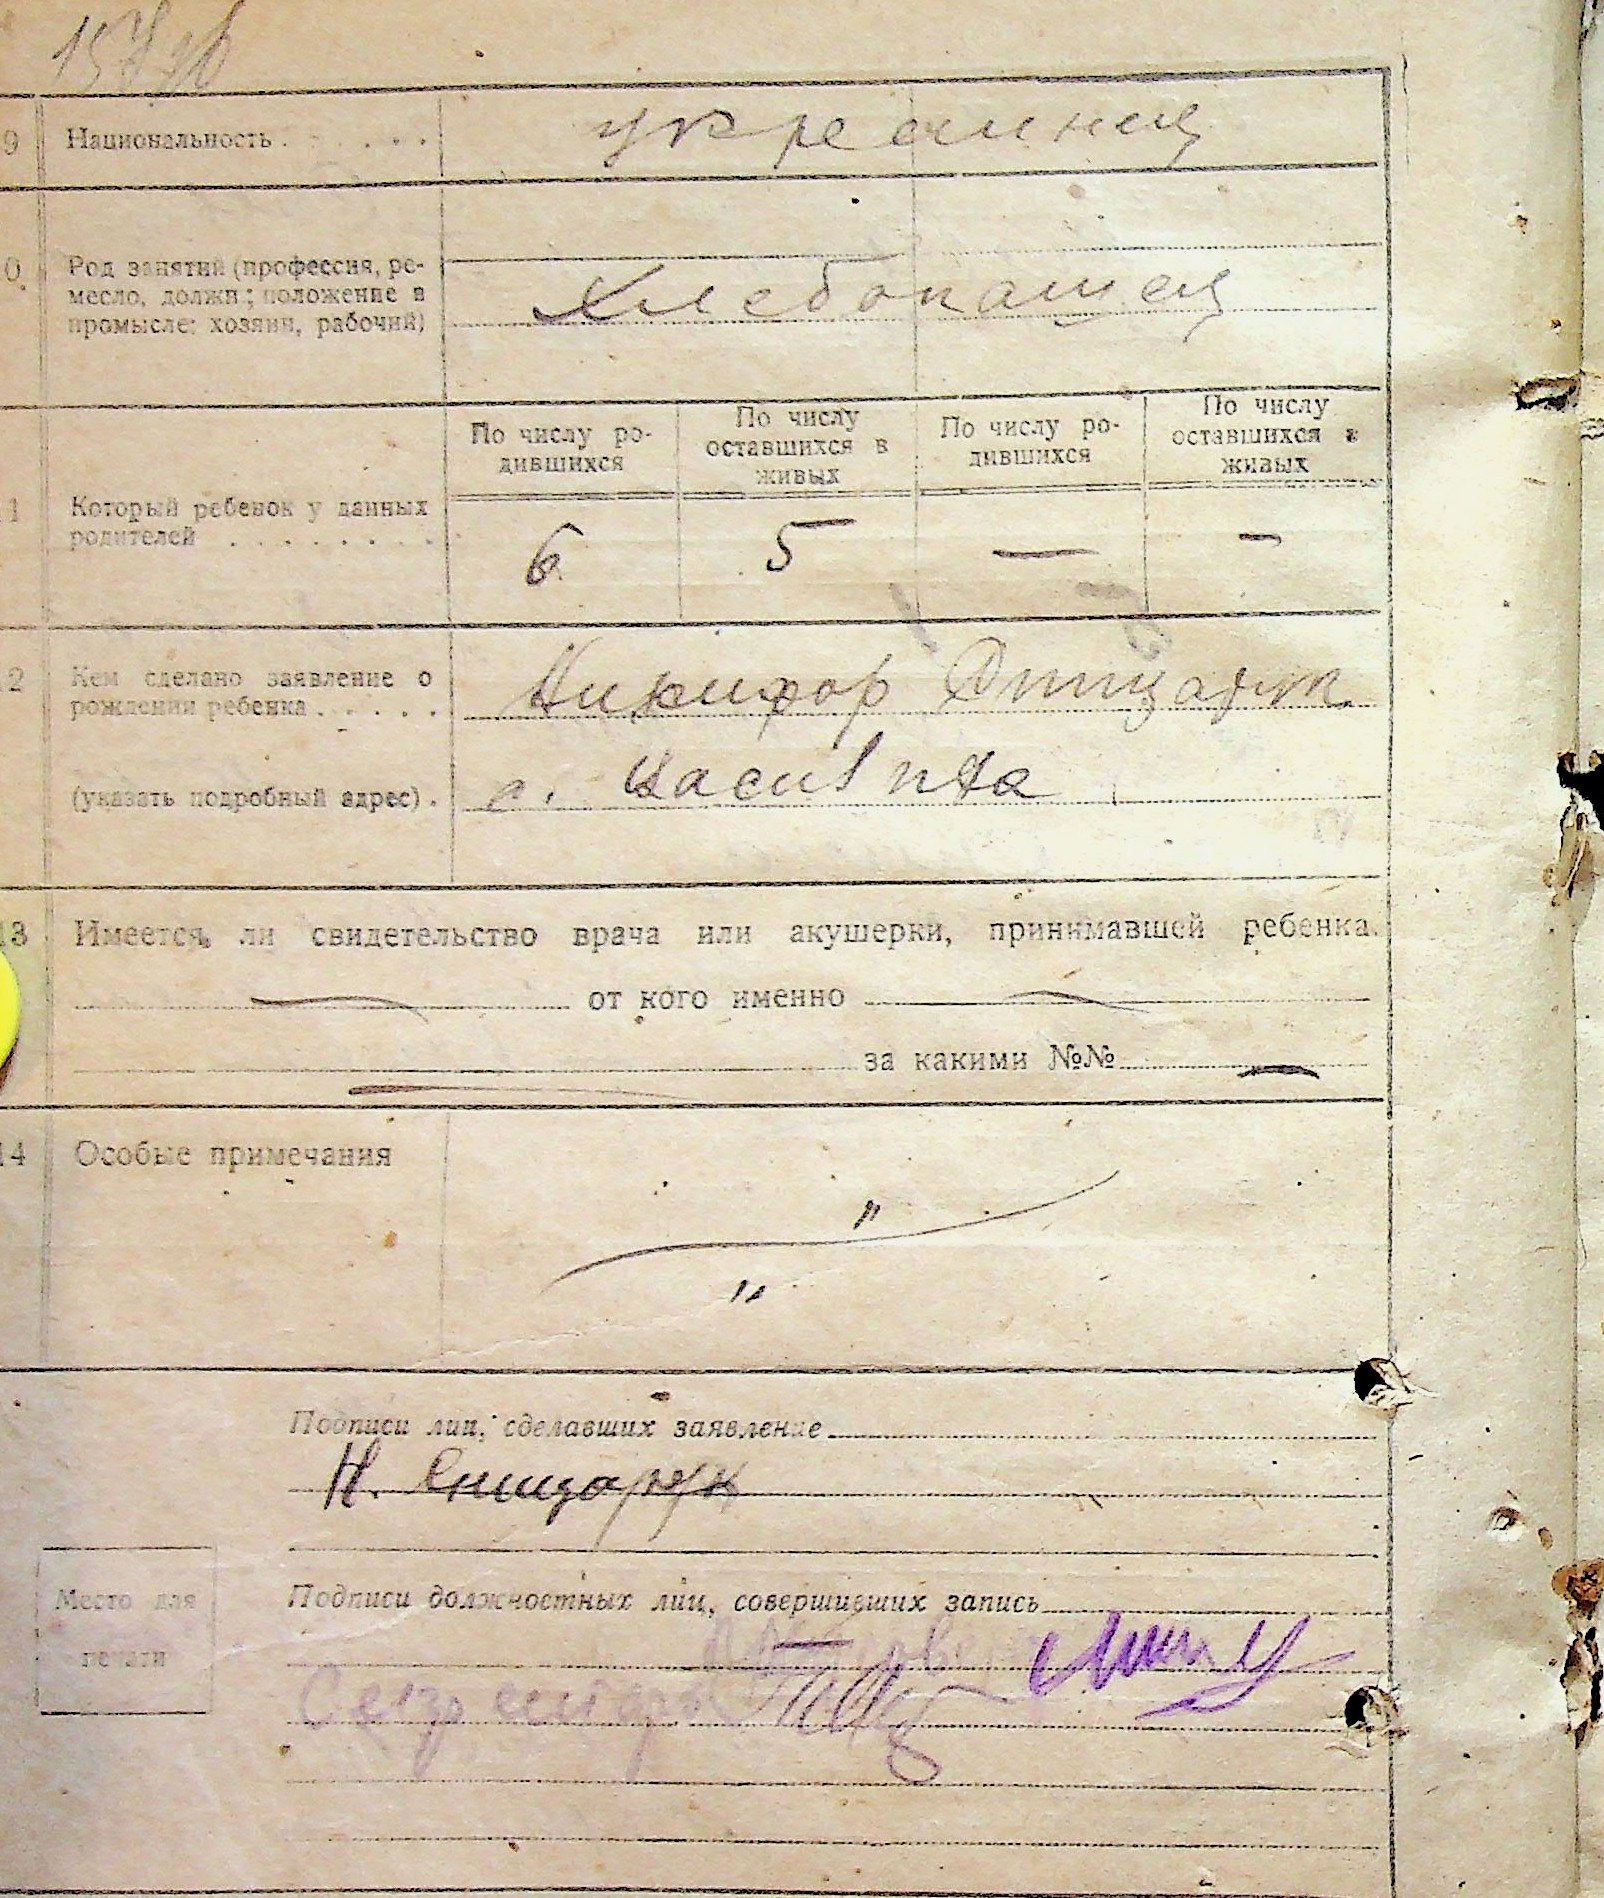 9 Национальность . . . . . . украинец
Род занятий (профессия, ре-
месло, должн; положение в
промысле: хозяин, рабочий)
Хлебопашец
По числу ро-
дившихся
По числу
оставшихся в
живых
По числу ро-
дившихся
По числу
оставшихся в
живых
Который ребенок у данных
родителей . . . . . . . .
6 5 — —
Кем сделано заявление о
рождении ребенка . . . . .
Никифор
(указать подробный адрес) . с.
13 Имеется ли свидетельство врача или акушерки, принимавшей ребенка.
— от кого именно —
— за какими №№ —
14 Особые примечания
"
"
Подписи лиц, сделавших заявление
Н.
Место для
печати
Подписи должностных лиц, совершивших запись